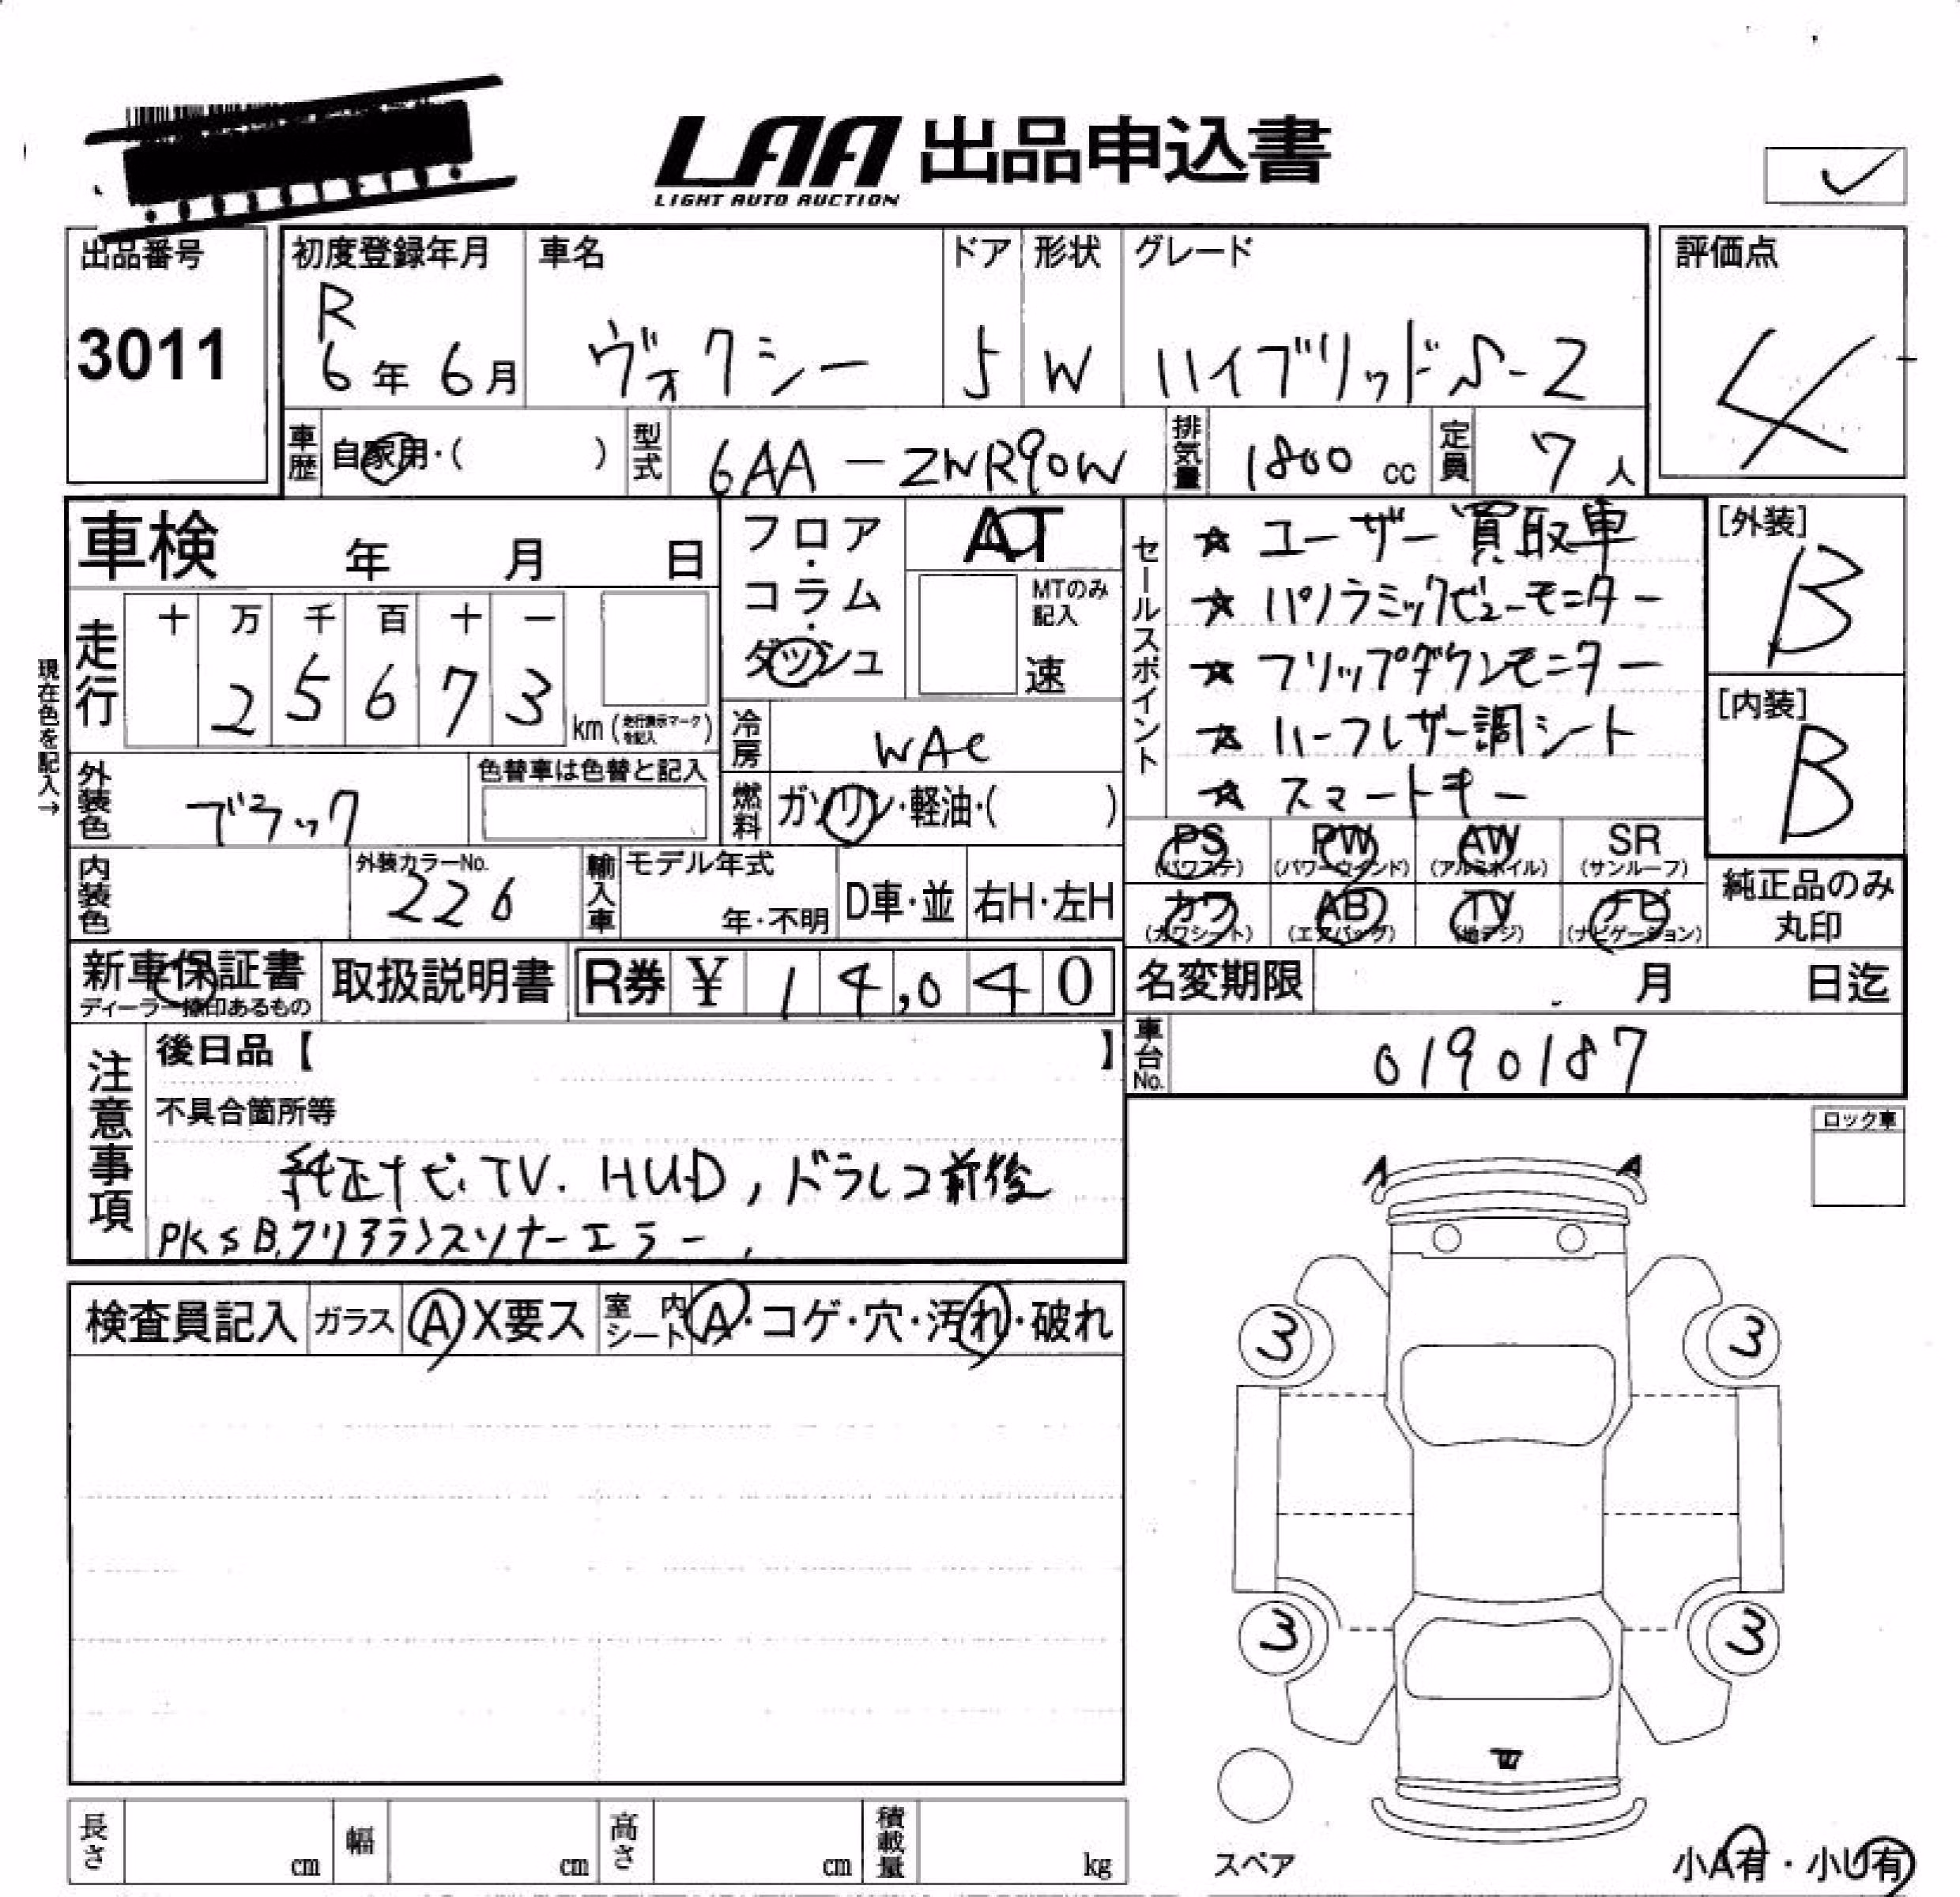 LAA 出品申込書
LIGHT AUTO AUCTION
出品番号
3011
初度登録年月
R
6年 6月
車名
ヴォクシー
ドア
5
形状
W
グレード
ハイブリッドS-Z
評価点
4
車歴
自家用・( )
型式
6AA-ZWR90W
排気量
1800 cc
定員
7人
車検 年 月 日
フロア・コラム・ダッシュ
AT
MTのみ記入
速
セールスポイント
☆ ユーザー買取車
☆ パノラミックビューモニター
☆ フリップダウンモニター
☆ ハーフレザー調シート
☆ スマートキー
[外装]
B
[内装]
B
現在色を記入→
走行
十 万 千 百 十 一
2 5 6 7 3
km (走行表示マークを記入)
冷房
WAC
外装色
ブラック
色替車は色替と記入
燃料
ガソリン・軽油・( )
PS
(パワステ)
PW
(パワーウインド)
AW
(アルミホイル)
SR
(サンルーフ)
カワ
(カワシート)
AB
(エアバッグ)
TV
(地デジ)
ナビ
(ナビゲーション)
純正品のみ
丸印
内装色
外装カラーNo.
226
輸入車
モデル年式
年・不明
D車・並
右H・左H
新車保証書
取扱説明書
R券 ¥ 14,040
名変期限 月 日迄
車台No.
0190187
注意事項
後日品【 】
不具合箇所等
純正ナビ.TV. HUD, ドラレコ前後
PKSB.クリアランスソナーエラー.
ロック車
A A
検査員記入
ガラス
A X要ス
室内シート
A・コゲ・穴・汚れ・破れ
3 3
3 3
スペア
小A有・小U有
長さ cm
幅 cm
高さ cm
積載量 kg